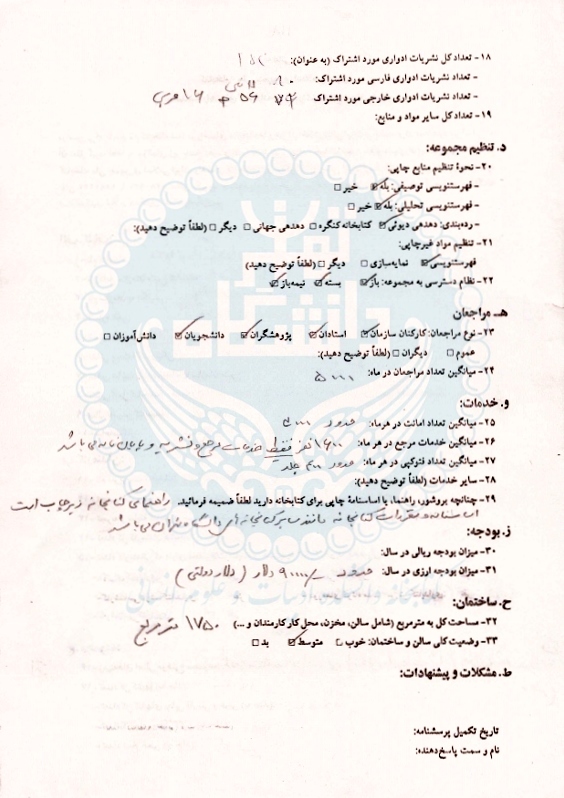 ۱۸- تعداد کل نشریات ادواری مورد اشتراک (به عنوان):
- تعداد نشریات ادواری فارسی مورد اشتراک:
- تعداد نشریات ادواری خارجی مورد اشتراک ۱۶ عربی
۱۹- تعداد کل سایر مواد و منابع:
د. تنظیم مجموعه:
۲۰- نحوهٔ تنظیم منابع چاپی:
- فهرستنویسی توصیفی: بله☑ خیر □
- فهرستنویسی تحلیلی: بله☑ خیر □
- رده‌بندی: دهدهی دیوئی☑ کتابخانه کنگره □ دهدهی جهانی □ دیگر □ (لطفاً توضیح دهید):
۲۱- تنظیم مواد غیرچاپی:
فهرستنویسی☑ نمایه‌سازی □ دیگر □ (لطفاً توضیح دهید)
۲۲- نظام دسترسی به مجموعه: باز☑ بسته☑ نیمه‌باز☑
هـ. مراجعان
۲۳- نوع مراجعان: کارکنان سازمان☑ استادان☑ پژوهشگران☑ دانشجویان☑ دانش‌آموزان □
عموم □ دیگران □ (لطفاً توضیح دهید):
۲۴- میانگین تعداد مراجعان در ماه: ۵۰۰۰
و. خدمات:
۲۵- میانگین تعداد امانت در هرماه: حدود
۲۶- میانگین خدمات مرجع در هر ماه: ۱۶۰۰ نفر فقط خدمات مرجع و نشریه و پایان نامه می باشد
۲۷- میانگین تعداد فتوکپی در هر ماه: حدود جلد
۲۸- سایر خدمات (لطفاً توضیح دهید):
۲۹- چنانچه بروشور، راهنما، یا اساسنامهٔ چاپی برای کتابخانه دارید لطفاً ضمیمه فرمائید. راهنمای کتابخانه زیر چاپ است
اساسنامه و مقررات کتابخانه مانند سایر کتابخانه های دانشگاه تهران می باشد
ز. بودجه:
۳۰- میزان بودجه ریالی در سال:
۳۱- میزان بودجه ارزی در سال: حدود ۹۰۰۰۰ دلار (دلار دولتی)
ح. ساختمان:
۳۲- مساحت کل به مترمربع (شامل سالن، مخزن، محل کار کارمندان و ...) ۱۷۵۰ متر مربع
۳۳- وضعیت کلی سالن و ساختمان: خوب □ متوسط☑ بد □
ط. مشکلات و پیشنهادات:
تاریخ تکمیل پرسشنامه:
نام و سمت پاسخ‌دهنده: